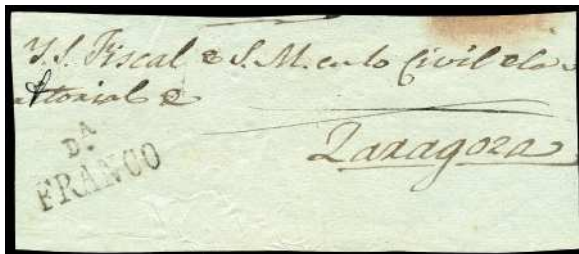 Y. S. Fiscal de S. M. en lo Civil de la
de
Zaragoza
DA.
FRANCO